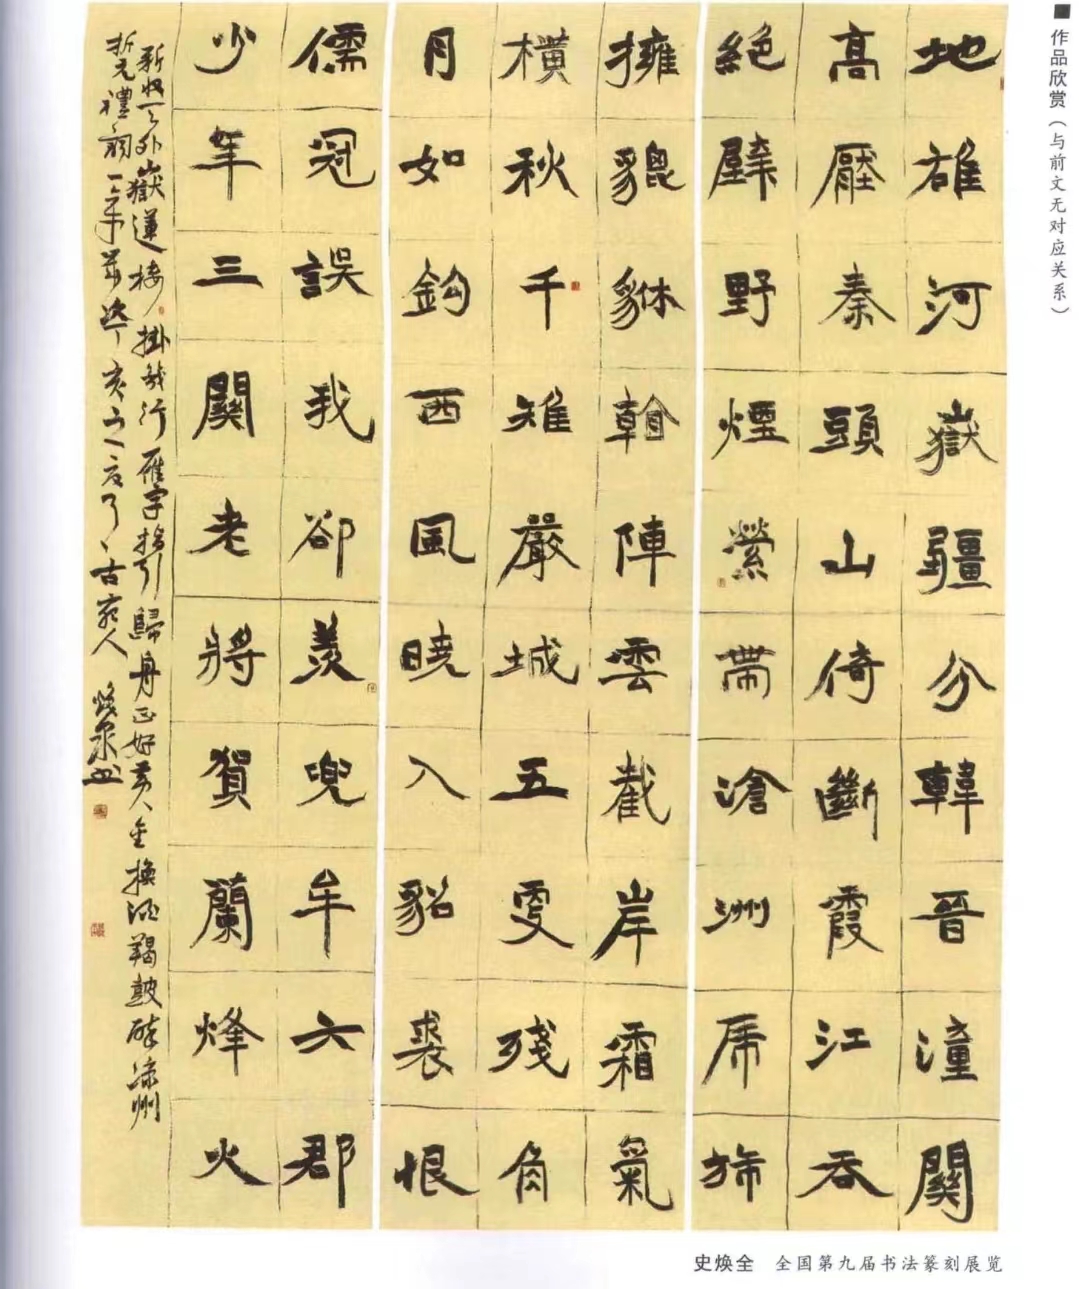 作品欣赏（与前文无对应关系）
地雄河嶽疆分韓晉潼關
高壓秦頭山倚斷霞江吞
絕壁野煙縈帶滄洲虎旆
擁貔貅看陣雲截岸霜氣
橫秋千雉嚴城五更殘角
月如鈎西風曉入貂裘恨
儒冠誤我卻羨兜牟六郡
少年三關老將賀蘭烽火
新收天外嶽蓮樓掛幾行雁字指引歸舟正好黃金換酒羯鼓醉涼州
折元禮詞一章 丁亥之 古宛人
史焕全 全国第九届书法篆刻展览